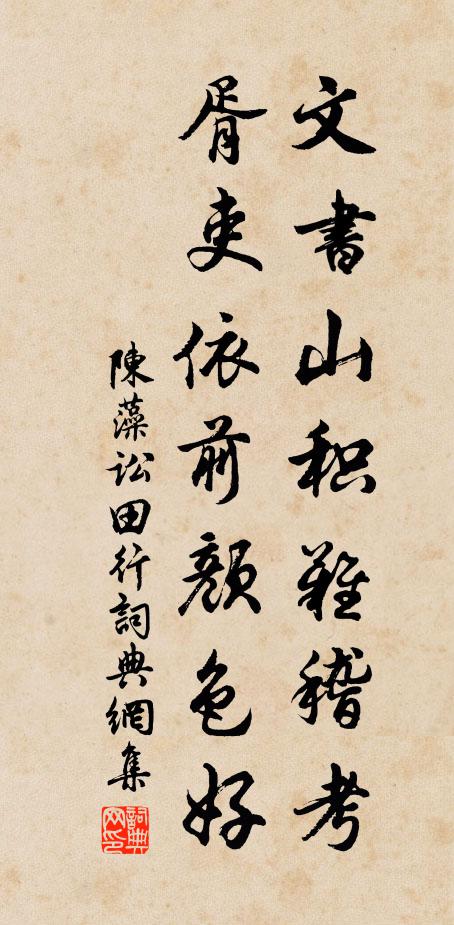 文書山积難稽考
胥吏依前顏色好
陳藻訟田行詞典網集
詞典网印